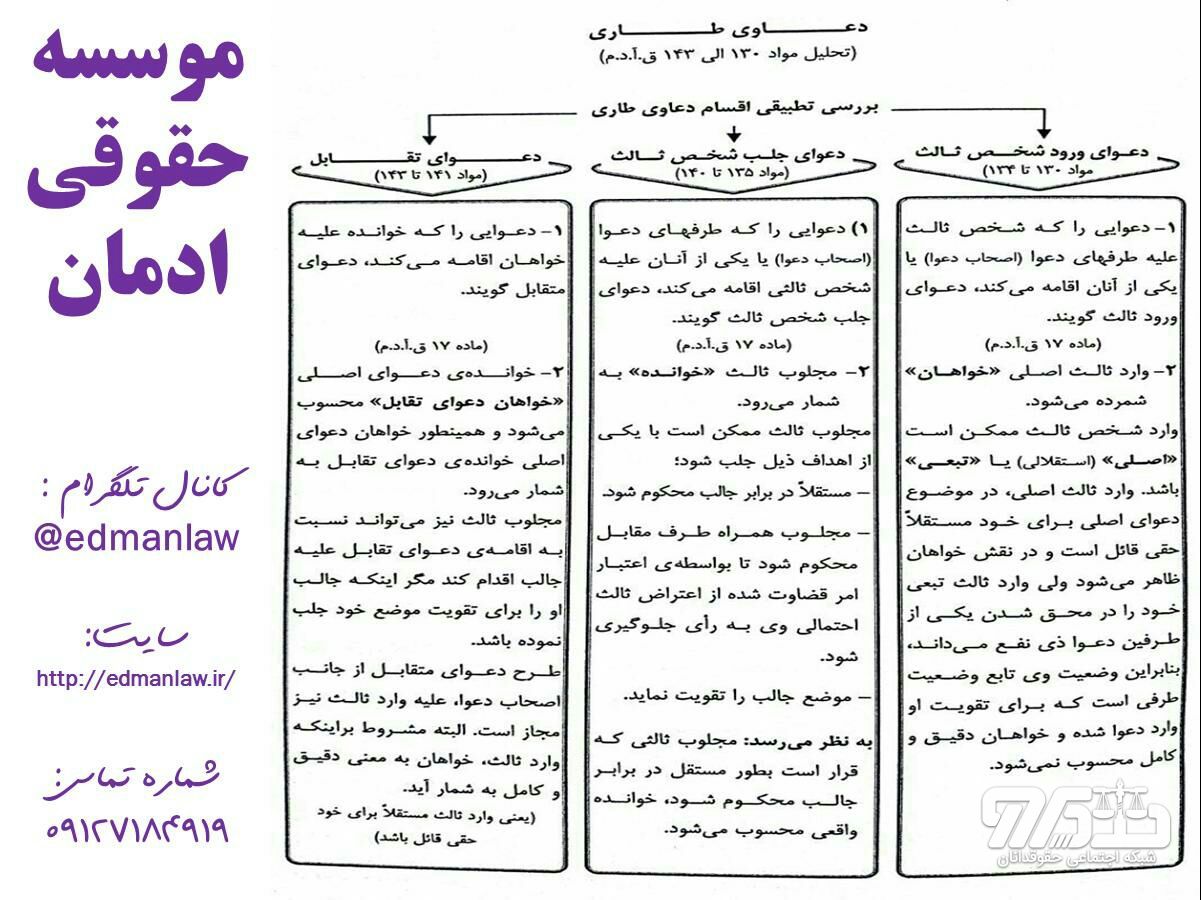 موسسه
حقوقی
ادمان
کانال تلگرام :
@edmanlaw
سایت:
http://edmanlaw.ir/
شماره تماس:
۰۹۱۲۷۱۸۴۹۱۹
دعـــاوی طـــاری
(تحلیل مواد ۱۳۰ الی ۱۴۳ ق.آ.د.م)
بررسی تطبیقی اقسام دعاوی طاری
دعـوای ورود شخـص ثالث
(مواد ۱۳۰ تا ۱۳۴)
۱- دعوایی را که شخص ثالث
علیه طرفهای دعوا (اصحاب دعوا) یا
یکی از آنان اقامه می‌کند، دعـوای
ورود ثالث گویند.
(ماده ۱۷ ق.آ.د.م)
۲- وارد ثالث اصلی «خواهـان»
شمرده می‌شود.
وارد شـخص ثالث ممکـن است
«اصـلی» (استقلالی) یـا «تبعـی»
باشد. وارد ثالث اصلی، در موضـوع
دعوای اصلی برای خـود مستقلاً
حقی قائل است و در نقش خواهان
ظاهر می‌شود ولی وارد ثالث تبعی
خـود را در محـق شـدن یکـی از
طـرفین دعـوا ذی نفـع مـی‌دانـد،
بنابراین وضعیت وی تابع وضعیت
طرفی است کـه بـرای تقویـت او
وارد دعوا شده و خواهـان دقیق و
کامل محسوب نمی‌شود.
دعوای جلـب شخـص ثـالث
(مواد ۱۳۵ تا ۱۴۰)
۱) دعوایی را که طرفهـای دعـوا
(اصحاب دعوا) یا یکی از آنـان علیـه
شخص ثالثی اقامه می‌کند، دعوای
جلب شخص ثالث گویند.
(ماده ۱۷ ق.آ.د.م)
۲- مجلوب ثالث «خوانده» به
شمار می‌رود.
مجلوب ثالث ممکن است با یکـی
از اهداف ذیل جلب شود؛
– مستقلاً در برابر جالب محکوم شود.
– مجلـوب همـراه طـرف مقابـل
محکوم شود تا بواسطه‌ی اعتبـار
امر قضاوت شده از اعتراض ثالث
احتمالی وی بـه رأی جلـوگیری
شود.
– موضع جالب را تقویت نماید.
به نظر می‌رسد: مجلوب ثالثی کـه
قرار است بطور مستقل در برابـر
جالـب محکـوم شـود، خوانـده
واقعی محسوب می‌شود.
دعـــوای تقـــابل
(مواد ۱۴۱ تا ۱۴۳)
۱- دعـوایی را کـه خوانده علیـه
خواهـان اقامـه مـی‌کنـد، دعـوای
متقابل گویند.
(ماده ۱۷ ق.آ.د.م)
۲- خوانـده‌ی دعـوای اصـلی
«خواهان دعوای تقابل» محسوب
می‌شود و همینطور خواهان دعوای
اصلی خوانده‌ی دعوای تقابـل بـه
شمار می‌رود.
مجلوب ثالث نیز می‌تواند نسـبت
بـه اقامـه‌ی دعـوای تقابـل علیـه
جالب اقدام کند مگر اینکـه جالـب
او را برای تقویت موضع خود جلب
نموده باشد.
طـرح دعـوای متقابـل از جانـب
اصحاب دعوا، علیه وارد ثالث نیـز
مجاز است. البته مشروط براینکـه
وارد ثالث، خواهان به معنی دقیـق
و کامل به شمار آید.
(یعنی وارد ثالث مستقلاً برای خود
حقی قائل باشد)
شبکه اجتماعی حقوقدانان